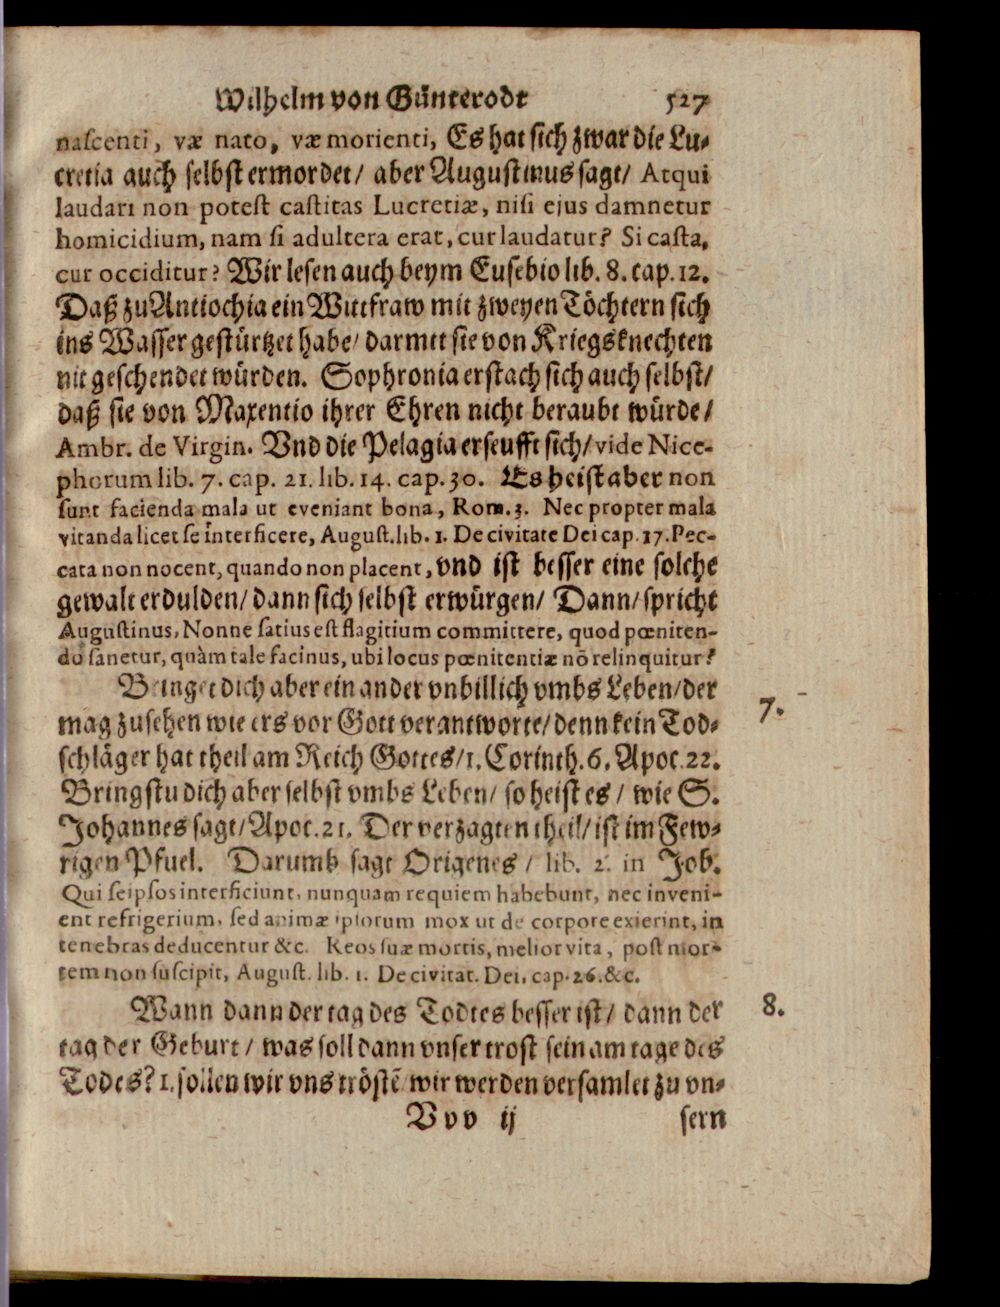 Wilhelm von Günterodt 527
nascenti, væ nato, væ morienti, Es hat sich zwar die Lu⸗
cretia auch selbst ermordet/ aber Augustinus sagt/ Atqui
laudari non potest castitas Lucretiæ, nisi ejus damnetur
homicidium, nam si adultera erat, cur laudatur? Si casta,
cur occiditur? Wir lesen auch beym Eusebio lib. 8. cap. 12.
Daß zu Antiochia ein Wittfraw mit zweyen Töchtern sich
ins Wasser gestürtzet habe/ darmit sie von Kriegsknechten
nit geschendet würden. Sophronia erstach sich auch selbst/
daß sie von Maxentio ihrer Ehren nicht beraubt würde/
Ambr. de Virgin. Vnd die Pelagia erseufft sich/ vide Nice-
phorum lib. 7. cap. 21. lib. 14. cap. 30. Es heist aber non
sunt facienda mala ut eveniant bona, Rom. 3. Nec propter mala
vitanda licet se interficere, August. lib. 1. De civitate Dei cap. 17. Pec-
cata non nocent, quando non placent, vnd ist besser eine solche
gewalt erdulden/ dann sich selbst erwürgen/ Dann/ spricht
Augustinus, Nonne satius est flagitium committere, quod pœniten-
do sanetur, quàm tale facinus, ubi locus pœnitentiæ nō relinquitur?
Bringet dich aber ein ander vnbillich vmbs Leben/ der
mag zusehen wie ers vor Gott verantworte/ denn kein Tod⸗ 7.
schläger hat theil am Reich Gottes/ 1. Corinth. 6. Apoc. 22.
Bringstu dich aber selbst vmbs Leben/ so heist es/ wie S.
Johannes sagt/ Apoc. 21. Der verzagten theil/ ist im Few⸗
rigen Pfuel. Darumb sagt Origenes/ lib. 2. in Job.
Qui seipsos interficiunt, nunquam requiem habebunt, nec inveni-
ent refrigerium, sed animæ ipsorum mox ut de corpore exierint, in
tenebras deducentur &c. Reos suæ mortis, melior vita, post mor-
tem non suscipit, August. lib. 1. De civitat. Dei, cap. 26. &c.
Wann dann der tag des Todtes besser ist/ dann der 8.
tag der Geburt/ was soll dann vnser trost sein am tage des
Todes? 1. sollen wir vns tröstē wir werden versamlet zu vn⸗
Vvv ij sern